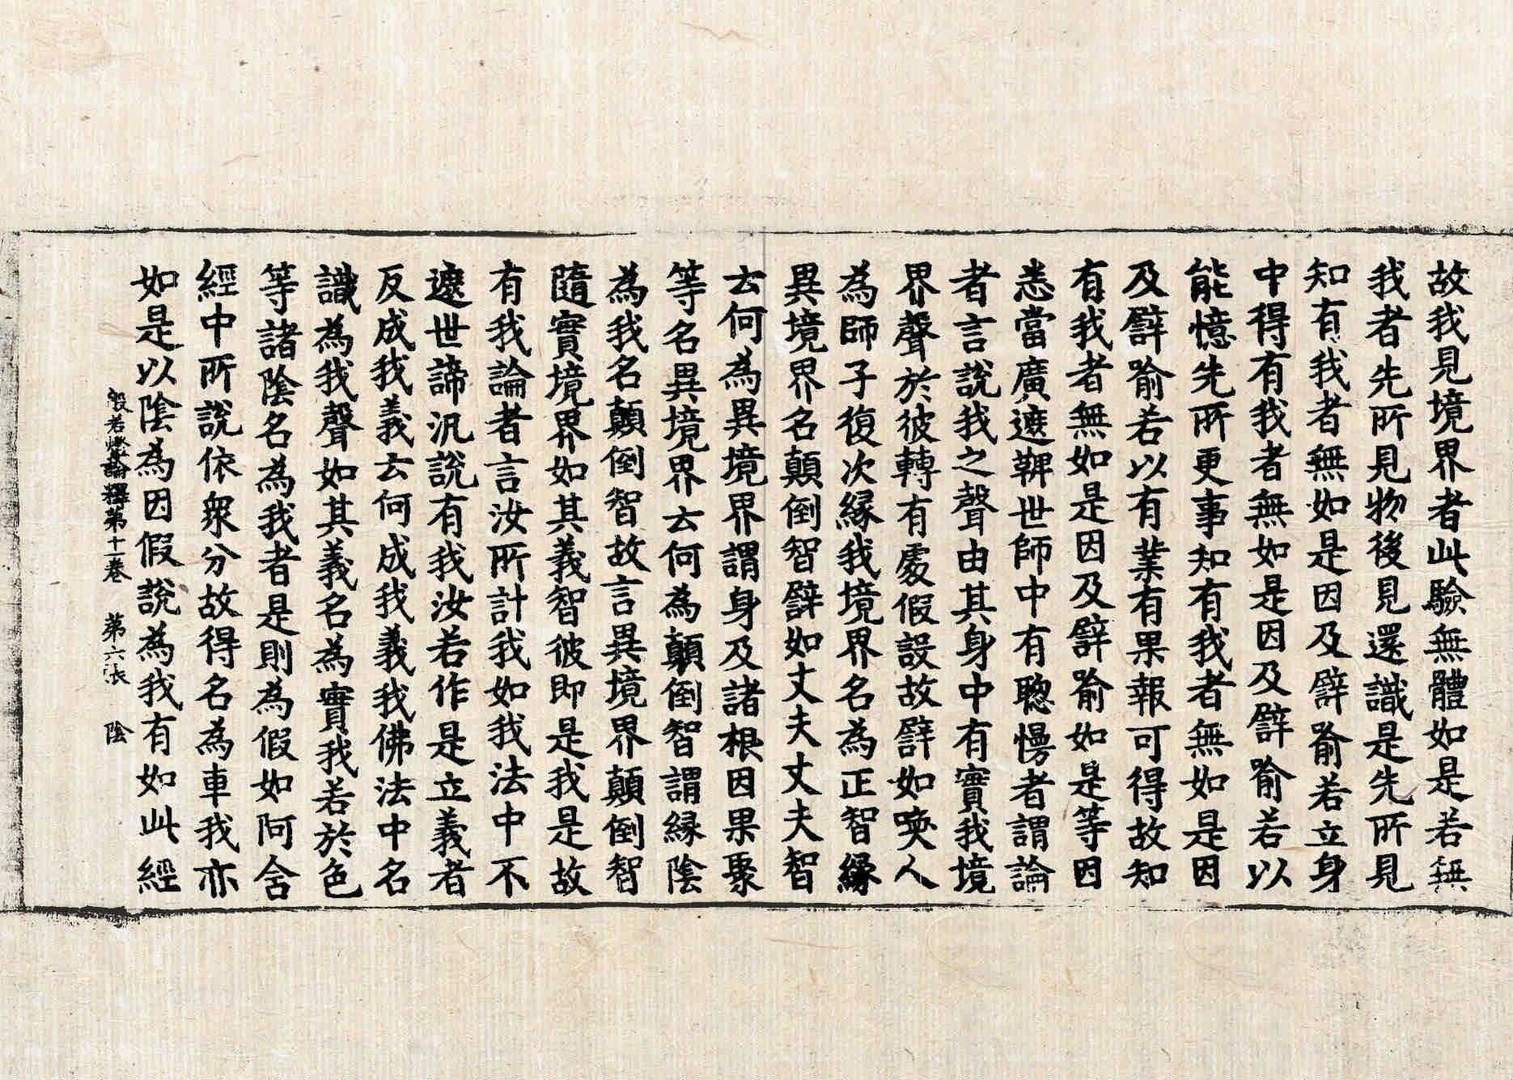 故我見境界者此驗無體如是若無
我者先所見物後見還識是先所見
知有我者無如是因及譬喻若立身
中得有我者無如是因及譬喻若以
能憶先所更事知有我者無如是因
及譬喻若以有業有果報可得故知
有我者無如是因及譬喻如是等因
悉當廣遮鞞世師中有聰慢者謂論
者言說我之聲由其身中有實我境
界聲於彼轉有處假設故譬如喚人
為師子復次緣我境界名為正智緣
異境界名顛倒智譬如丈夫丈夫智
去何為異境界謂身及諸根因果聚
等名異境界去何為顛倒智謂緣陰
為我名顛倒智故言異境界顛倒智
隨實境界如其義智彼即是我是故
有我論者言汝所計我如我法中不
遮世諦汎說有我汝若作是立義者
反成我義去何成我義我佛法中名
識為我聲如其義名為實我若於色
等諸陰名為我者是則為假如阿含
經中所說依眾分故得名為車我亦
如是以陰為因假說為我有如此經
般若燈論釋第十卷　第六張　陰